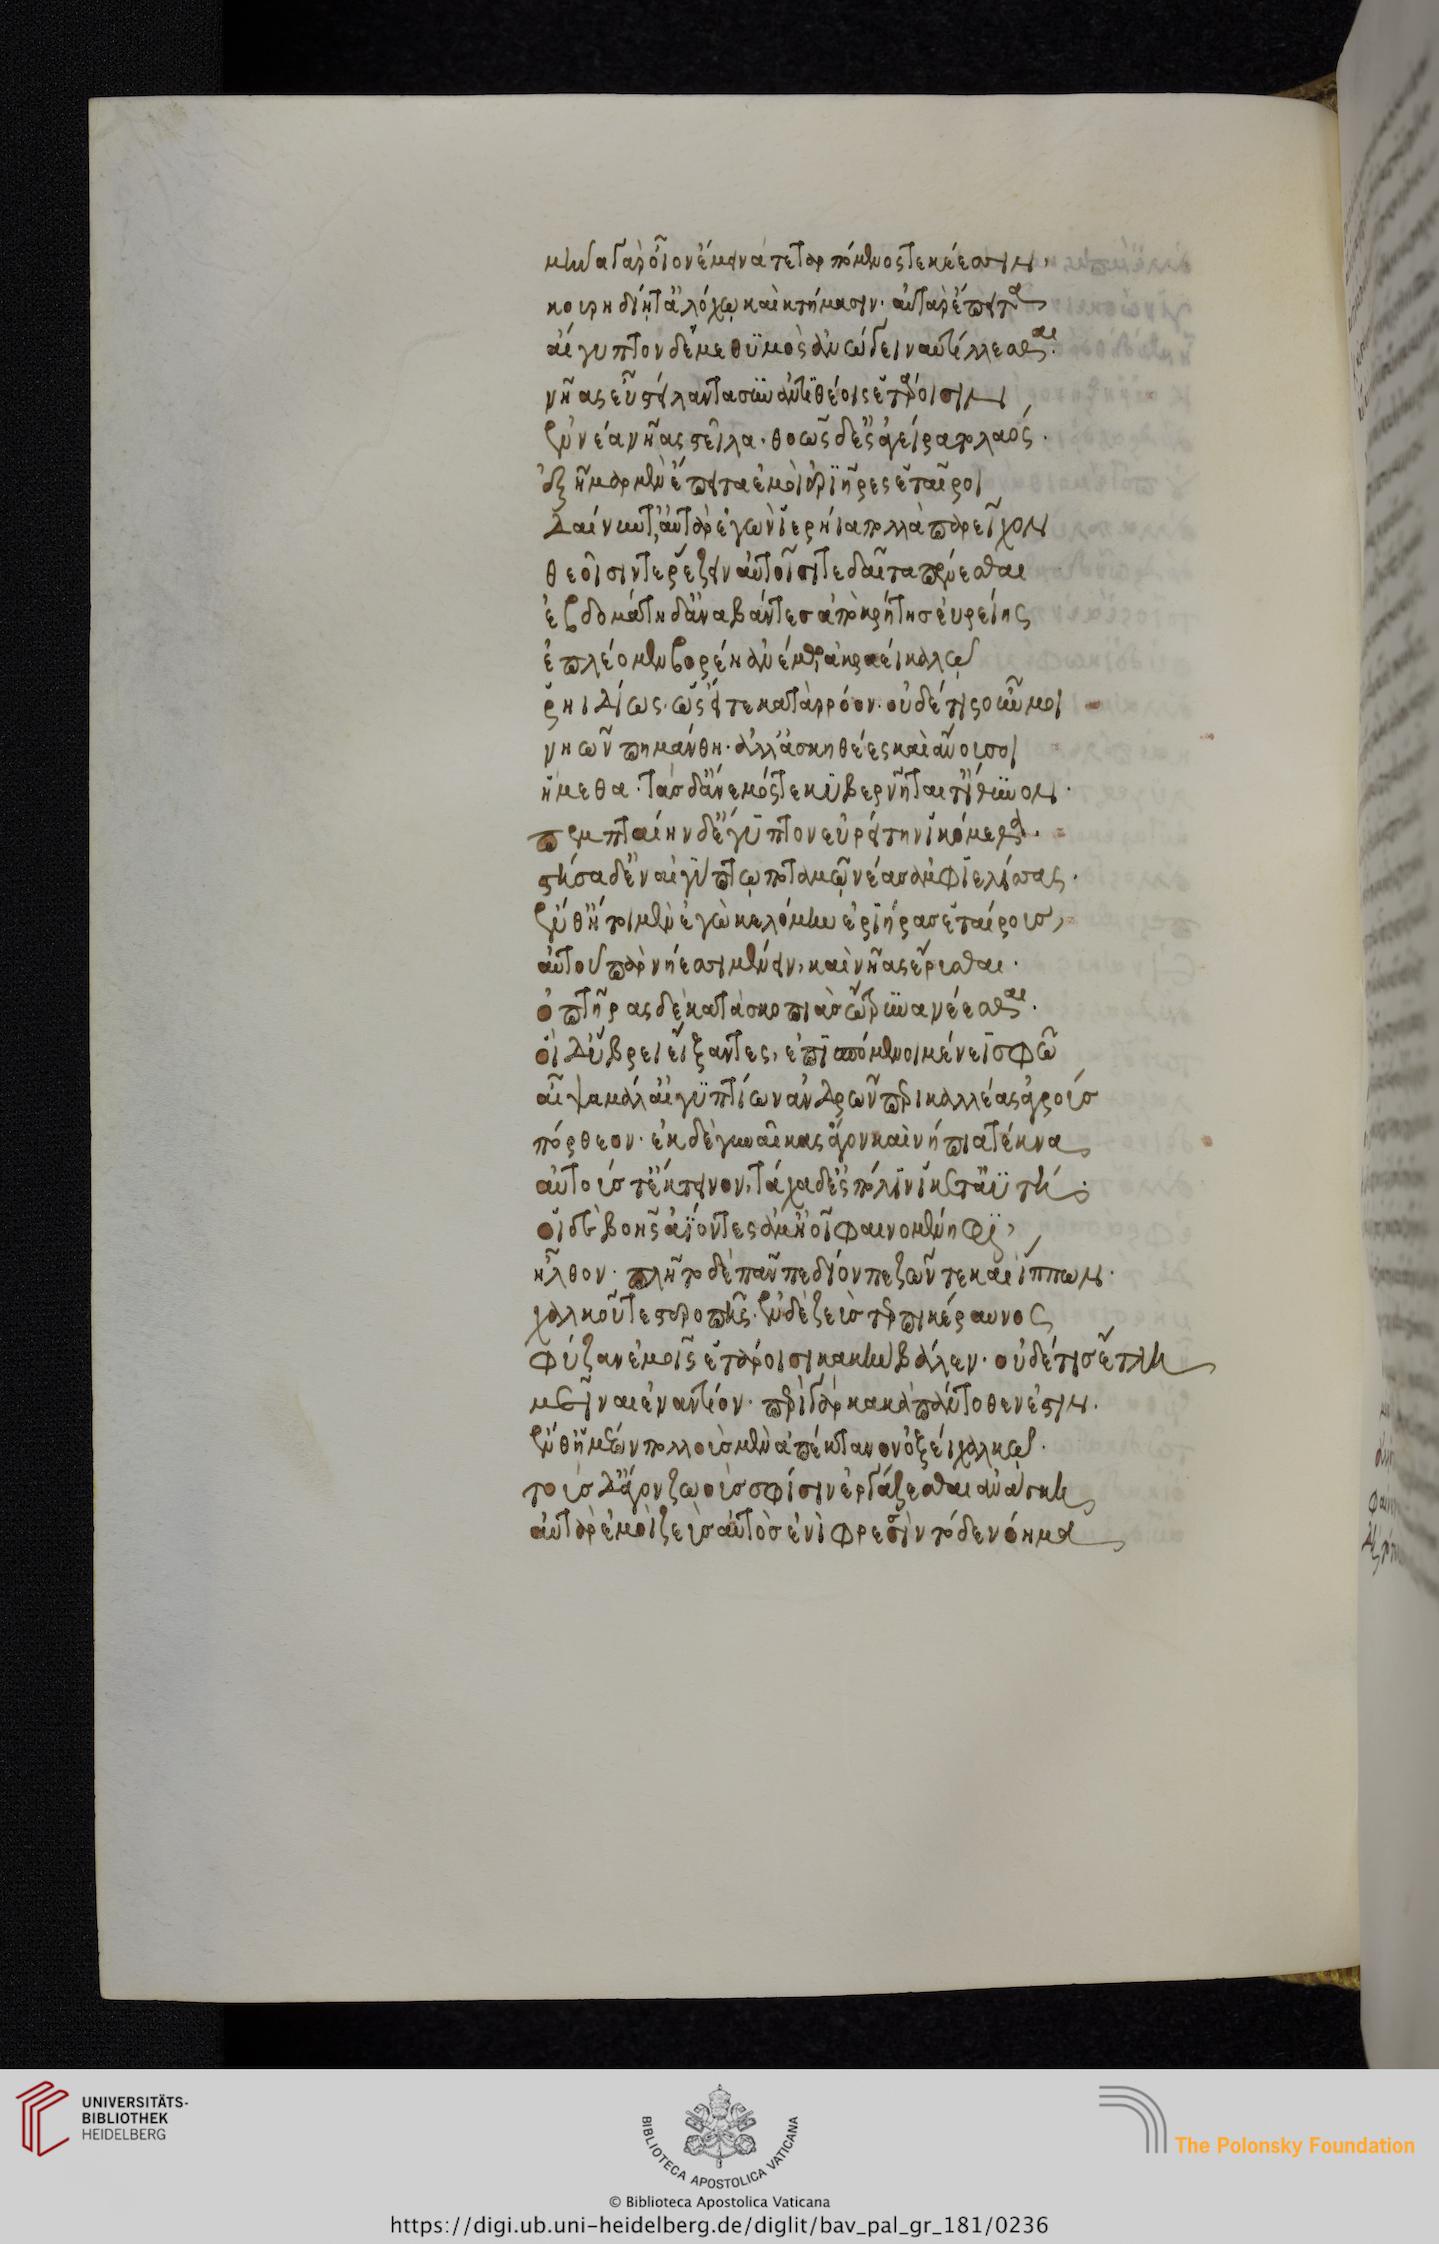 μῆνα γὰρ οἶον ἔμεινα τεταρπόμενος τεκέεσσιν,
κουριδίη τ' ἀλόχω καὶ κτήμασιν· αὐτὰρ ἔπειτα
αἴγυπτον δέ με θυμὸς ἀνώγειν αὐτέλλεσθαι·
νῆας εὖ στείλαντα σὺν ἀντιθέοις ἑτάροισιν
ἐννέα νῆας στεῖλα· θοῶς δ' ἐσαγείρατο λαός·
ἑξῆμαρ μὲν ἔπειτα ἐμοὶ ἐρίηρες ἑταῖροι
δαίνυντ', αὐτὰρ ἐγὼν ἱερήϊα πολλὰ παρεῖχον
θεοῖσίν τε ῥέζειν αὐτοῖσί τε δαῖτα πένεσθαι
ἑβδομάτη δ' ἀναβάντες ἀπὸ κρήτης εὐρείης
ἐπλέομεν βορέη ἀνέμω, ἀκραέϊ καλῷ
ῥηϊδίως· ὡσείτε κατὰ ῥόον· οὐδέ τις οὖν μοι
νηῶν πημάνθη· ἀλλ' ἀσκηθέες καὶ ἄνουσοι
ἥμεθα· τὰς δ' ἄνεμός τε κυβερνῆταί τ' ἴθυνον·
πεμπταίην δ' αἴγυπτον εὐρείτην ἱκόμεσθα·
στῆσα δ' ἐν αἰγύπτω ποταμῷ νέας ἀμφιελίσσας·
ἔνθ' ἤτοι μὲν ἐγὼ κελόμην ἐρίηρας ἑταίρους,
αὐτοῦ παρ νήεσσι μένειν, καὶ νῆας ἔρυσθαι·
ὀπτῆρας δὲ κατὰ σκοπιὰς ὤτρυνα νέεσθαι·
οἱ δ' ὕβρει εἴξαντες, ἐπισπόμενοι μένεϊ σφῶ
αἶψα μάλ' αἰγυπτίων ἀνδρῶν περικαλλέας ἀγρούς
πόρθεον· ἐκ δὲ γυναῖκας ἄγον καὶ νήπια τέκνα
αὐτούς τ' ἔκτεινον, τάχα δ' ἐς πόλιν ἵκετ' ἀϋτή·
οἱ δὲ βοῆς ἀΐοντες ἅμ' ἠοῖ φαινομένηφι,
ἦλθον· πλῆτο δὲ πᾶν πεδίον πεζῶν τε καὶ ἵππων·
χαλκοῦ τε στεροπῆς· ἐν δὲ ζεὺς τερπικέραυνος
φύζαν ἐμοῖς ἑτάροισι κακὴν βάλεν· οὐδέ τις ἔτλη
μεῖναι ἐναντίον· περὶ γὰρ κακὰ πάντοθεν ἔστην·
ἔνθ' ἡμέων πολλοὺς μὲν ἀπέκτανον ὀξέϊ χαλκῷ·
τοὺς δ' ἄγον ζωοὺς σφίσιν ἐργάζεσθαι ἀνάγκη
αὐτὰρ ἐμοὶ ζεὺς αὐτὸς ἐνὶ φρεσὶν τόδε νόημα
UNIVERSITÄTS-
BIBLIOTHEK
HEIDELBERG
BIBLIOTECA APOSTOLICA VATICANA
The Polonsky Foundation
© Biblioteca Apostolica Vaticana
https://digi.ub.uni-heidelberg.de/diglit/bav_pal_gr_181/0236